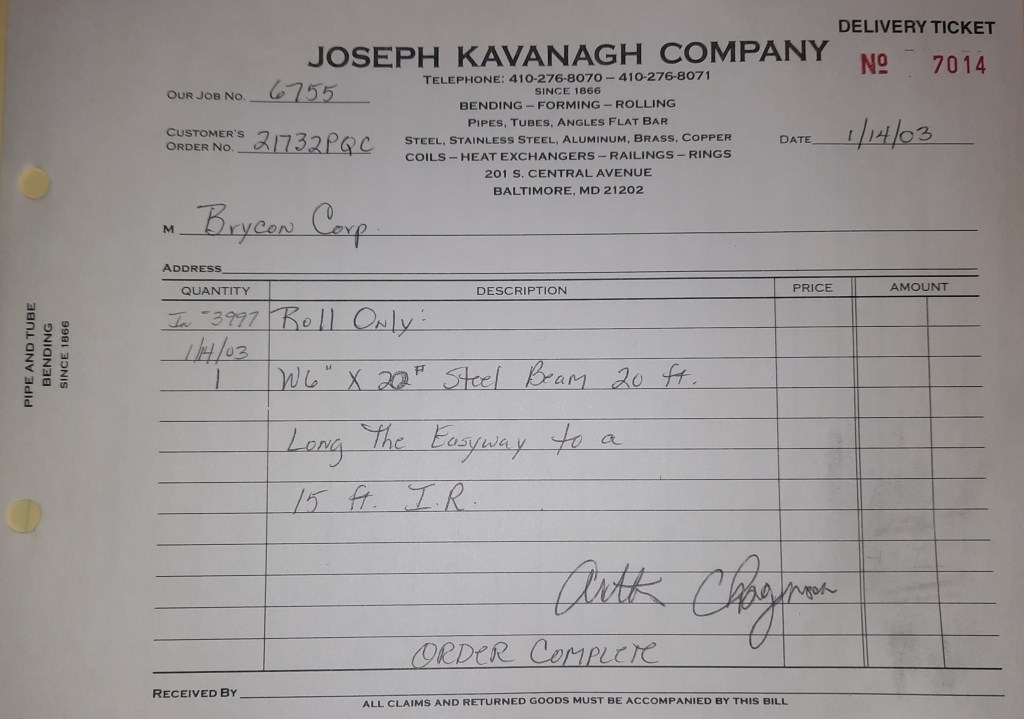 DELIVERY TICKET
JOSEPH KAVANAGH COMPANY
Nº 7014
TELEPHONE: 410-276-8070 – 410-276-8071
SINCE 1866
OUR JOB NO. 6755
BENDING – FORMING – ROLLING
PIPES, TUBES, ANGLES FLAT BAR
CUSTOMER'S ORDER NO. 21732PQC
STEEL, STAINLESS STEEL, ALUMINUM, BRASS, COPPER
DATE 1/14/03
COILS – HEAT EXCHANGERS – RAILINGS – RINGS
201 S. CENTRAL AVENUE
BALTIMORE, MD 21202
M Brycon Corp.
ADDRESS
QUANTITY DESCRIPTION PRICE AMOUNT
In -3997 Roll Only:
1/14/03
1 W6" X 20# Steel Beam 20 ft.
Long The Easyway to a
15 ft. I.R.
ORDER COMPLETE
RECEIVED BY
ALL CLAIMS AND RETURNED GOODS MUST BE ACCOMPANIED BY THIS BILL
PIPE AND TUBE
BENDING
SINCE 1866